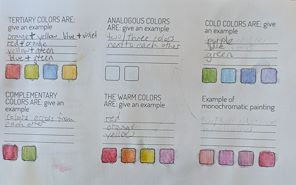 TERTIARY COLORS ARE:
give an example
orange + yellow blue + violet
red + orange
yellow + green
blue + green
ANALOGOUS COLORS
ARE: give an example
two/three colors
next to each other
COLD COLORS ARE:
give an example
purple
blue
green
COMPLEMENTARY
COLORS ARE: give an
example
colors across from
each other
THE WARM COLORS
ARE: give an example
red
orange
yellow
Example of
monochromatic painting